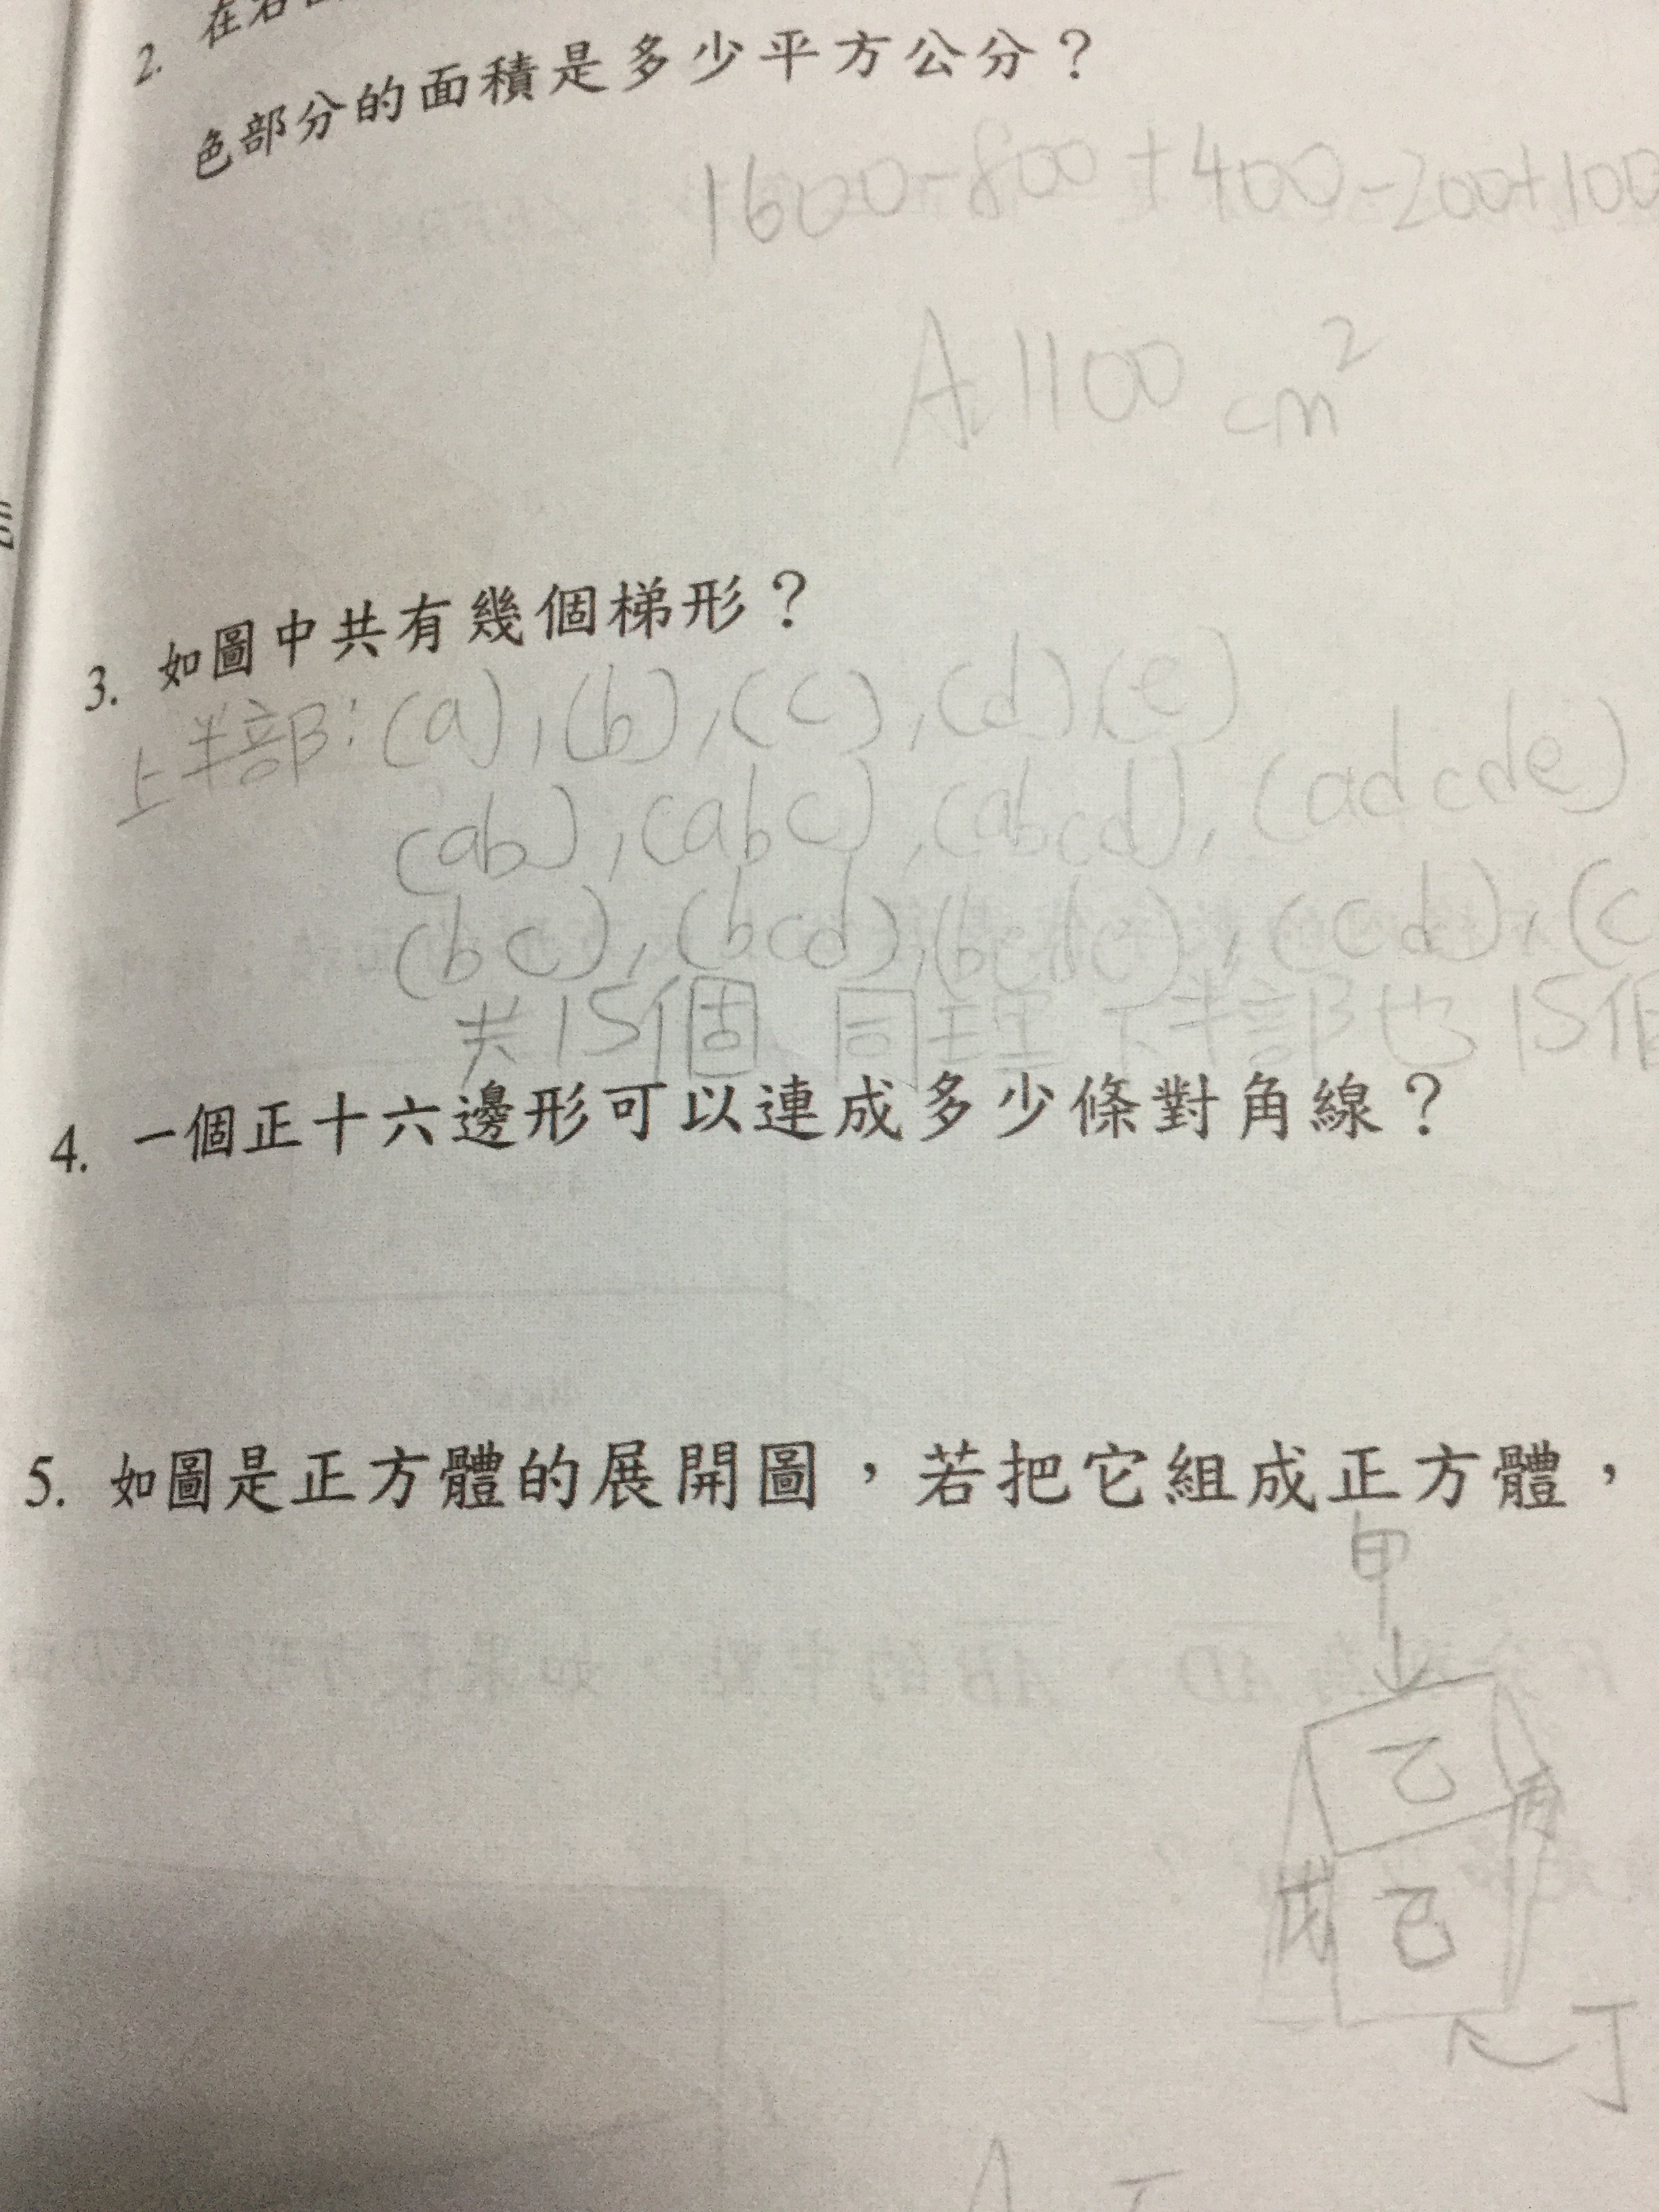 2. 在右
色部分的面積是多少平方公分？
1600-800+400-200+100
A 1100 cm²
3. 如圖中共有幾個梯形？
上半部:(a),(b),(c),(d)(e)
(ab),(abc),(abcd),(adcde)
(bc),(bcd),(bcde),(cd),(c
共15個 同理 下半部也15個
4. 一個正十六邊形可以連成多少條對角線？
5. 如圖是正方體的展開圖，若把它組成正方體，
甲
乙
丙
戊
己
丁